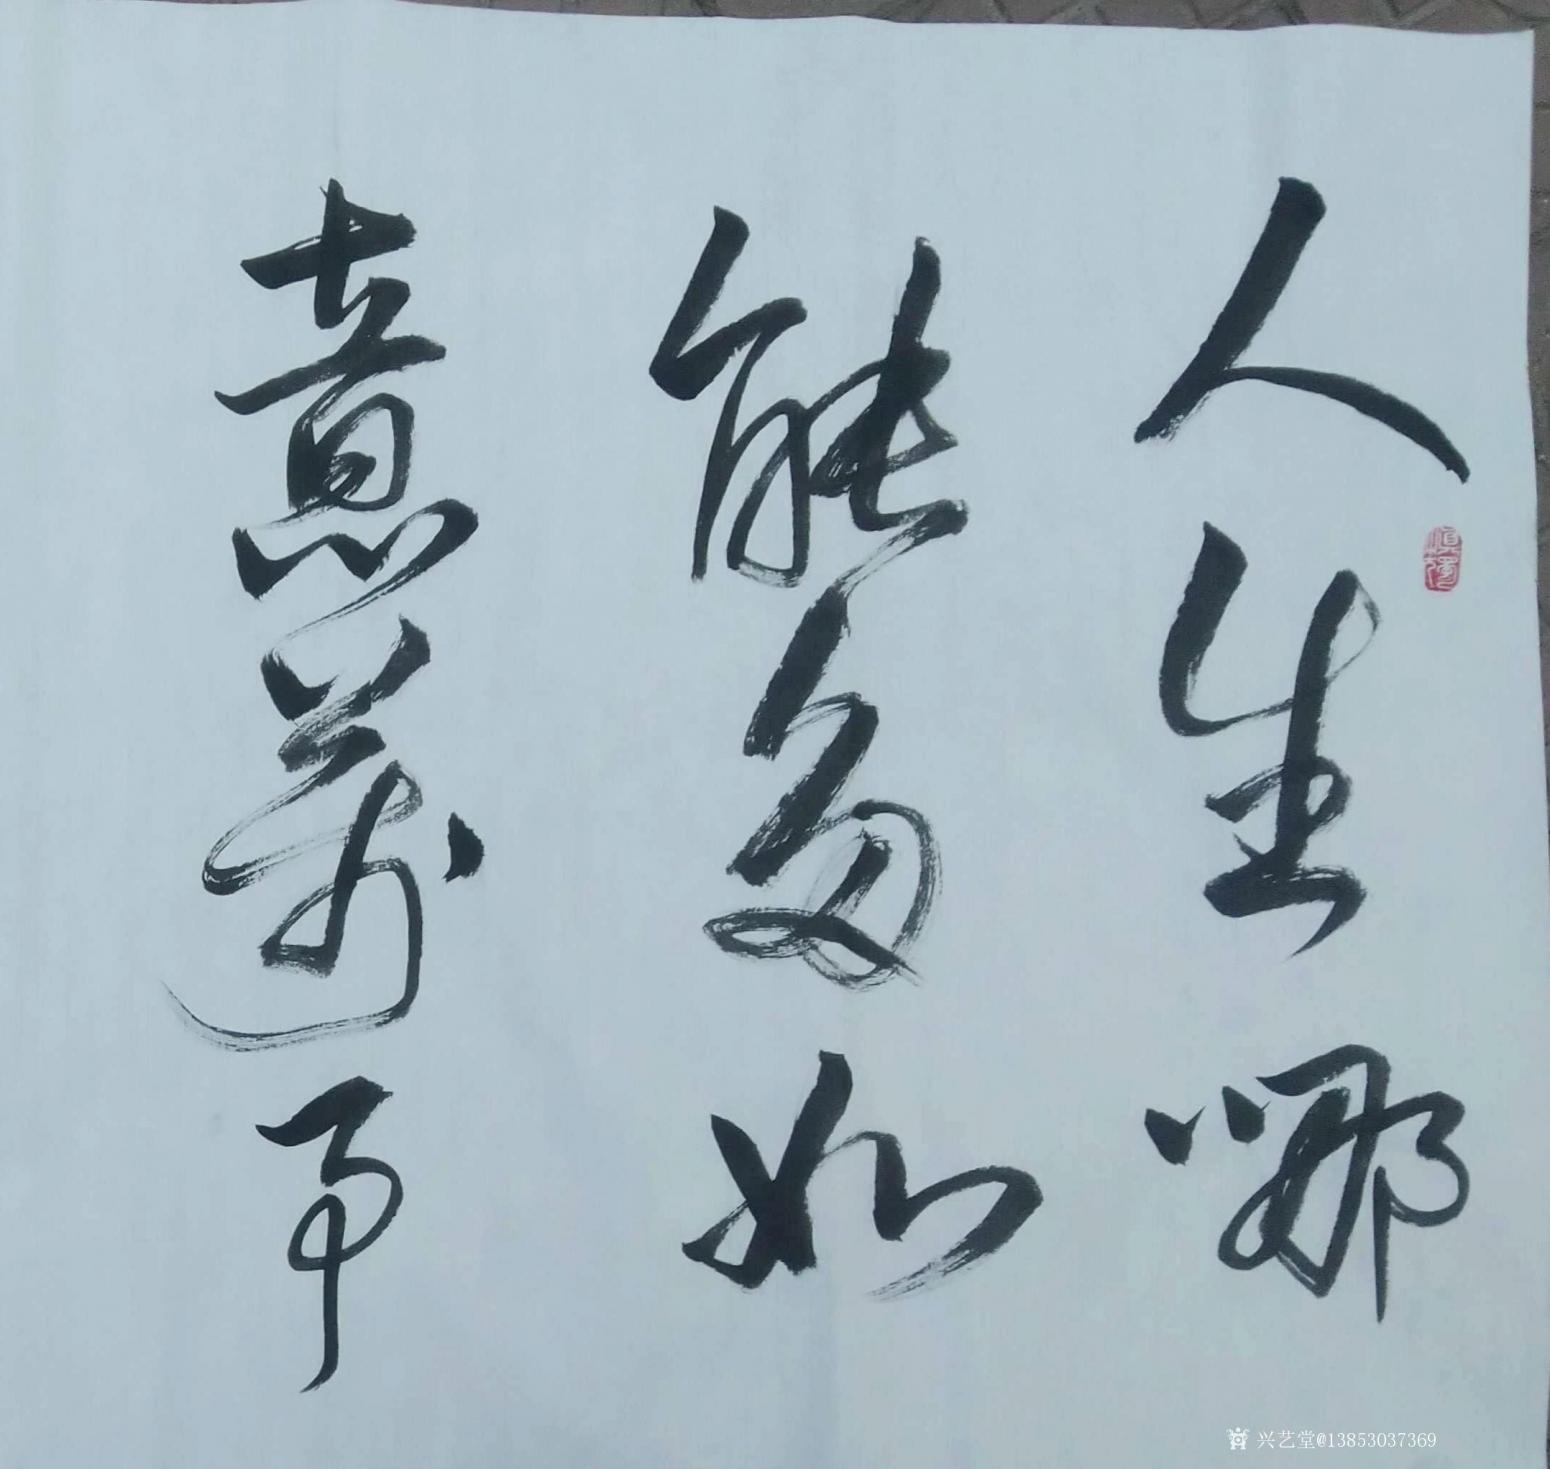 人生哪
能多如
意萬事
兴艺堂@13853037369